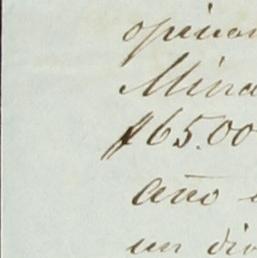 opinion
Mina
$65.00
año
un div